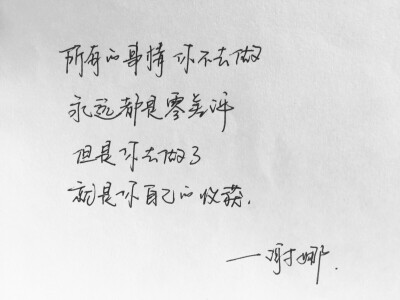 所有的事情你不去做
永远都是零差评
但是你去做了
就是你自己的收获.
—谢娜.